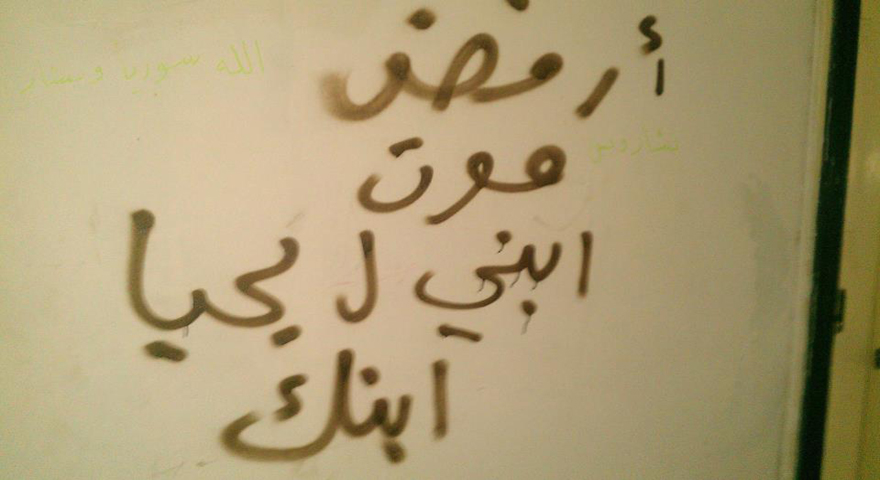 أرفض
الله سوريا وبشار
موت
ابني ل يحيا
ابنك